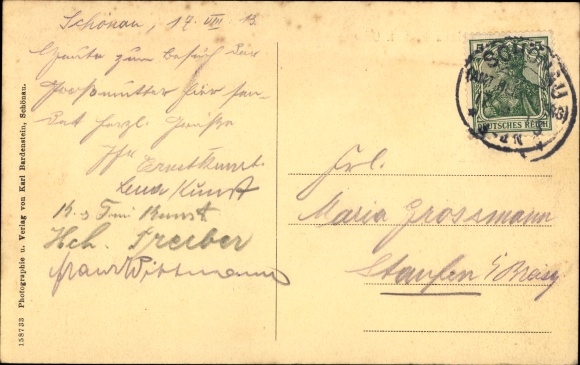 Schönau, 17. VIII 13.
Heute zum Besuch der
Grossmutter hier sen-
det herzl. Grüsse
Ihr Ernst Kunst.
Lena Kunst
Kunst
Hch. Treiber
Wittmann
Frl.
Maria Grossmann
Staufen i/Breisg
SCHÖNAU
DEUTSCHES REICH
158733 Photographie u. Verlag von Karl Bardenstein, Schönau.